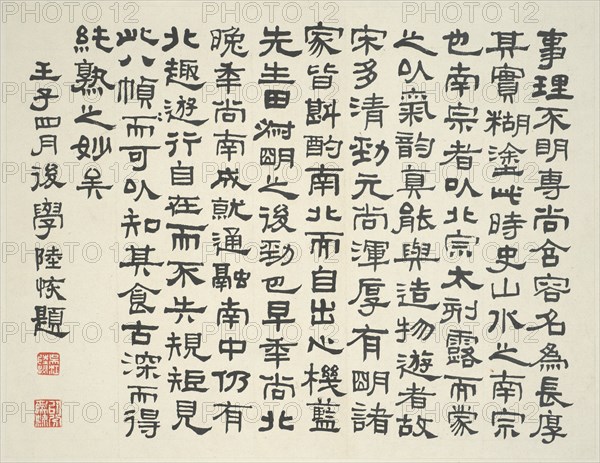 事理不明專尚含容名為長厚
其實糊塗此時史山水之南宗
也南宗者以北宗太刻露而蒙
之以氣韵真能與造物遊者故
宋多清勁元尚渾厚有明諸
家皆斟酌南北而自出心機藍
先生田叔明之後勁也早年尚北
晚年尚南成就通融南中仍有
北趣遊行自在而不失規矩見
此八幀而可以知其食古深而得
純熟之妙矣
壬子四月後學陸恢題
PHOTO12